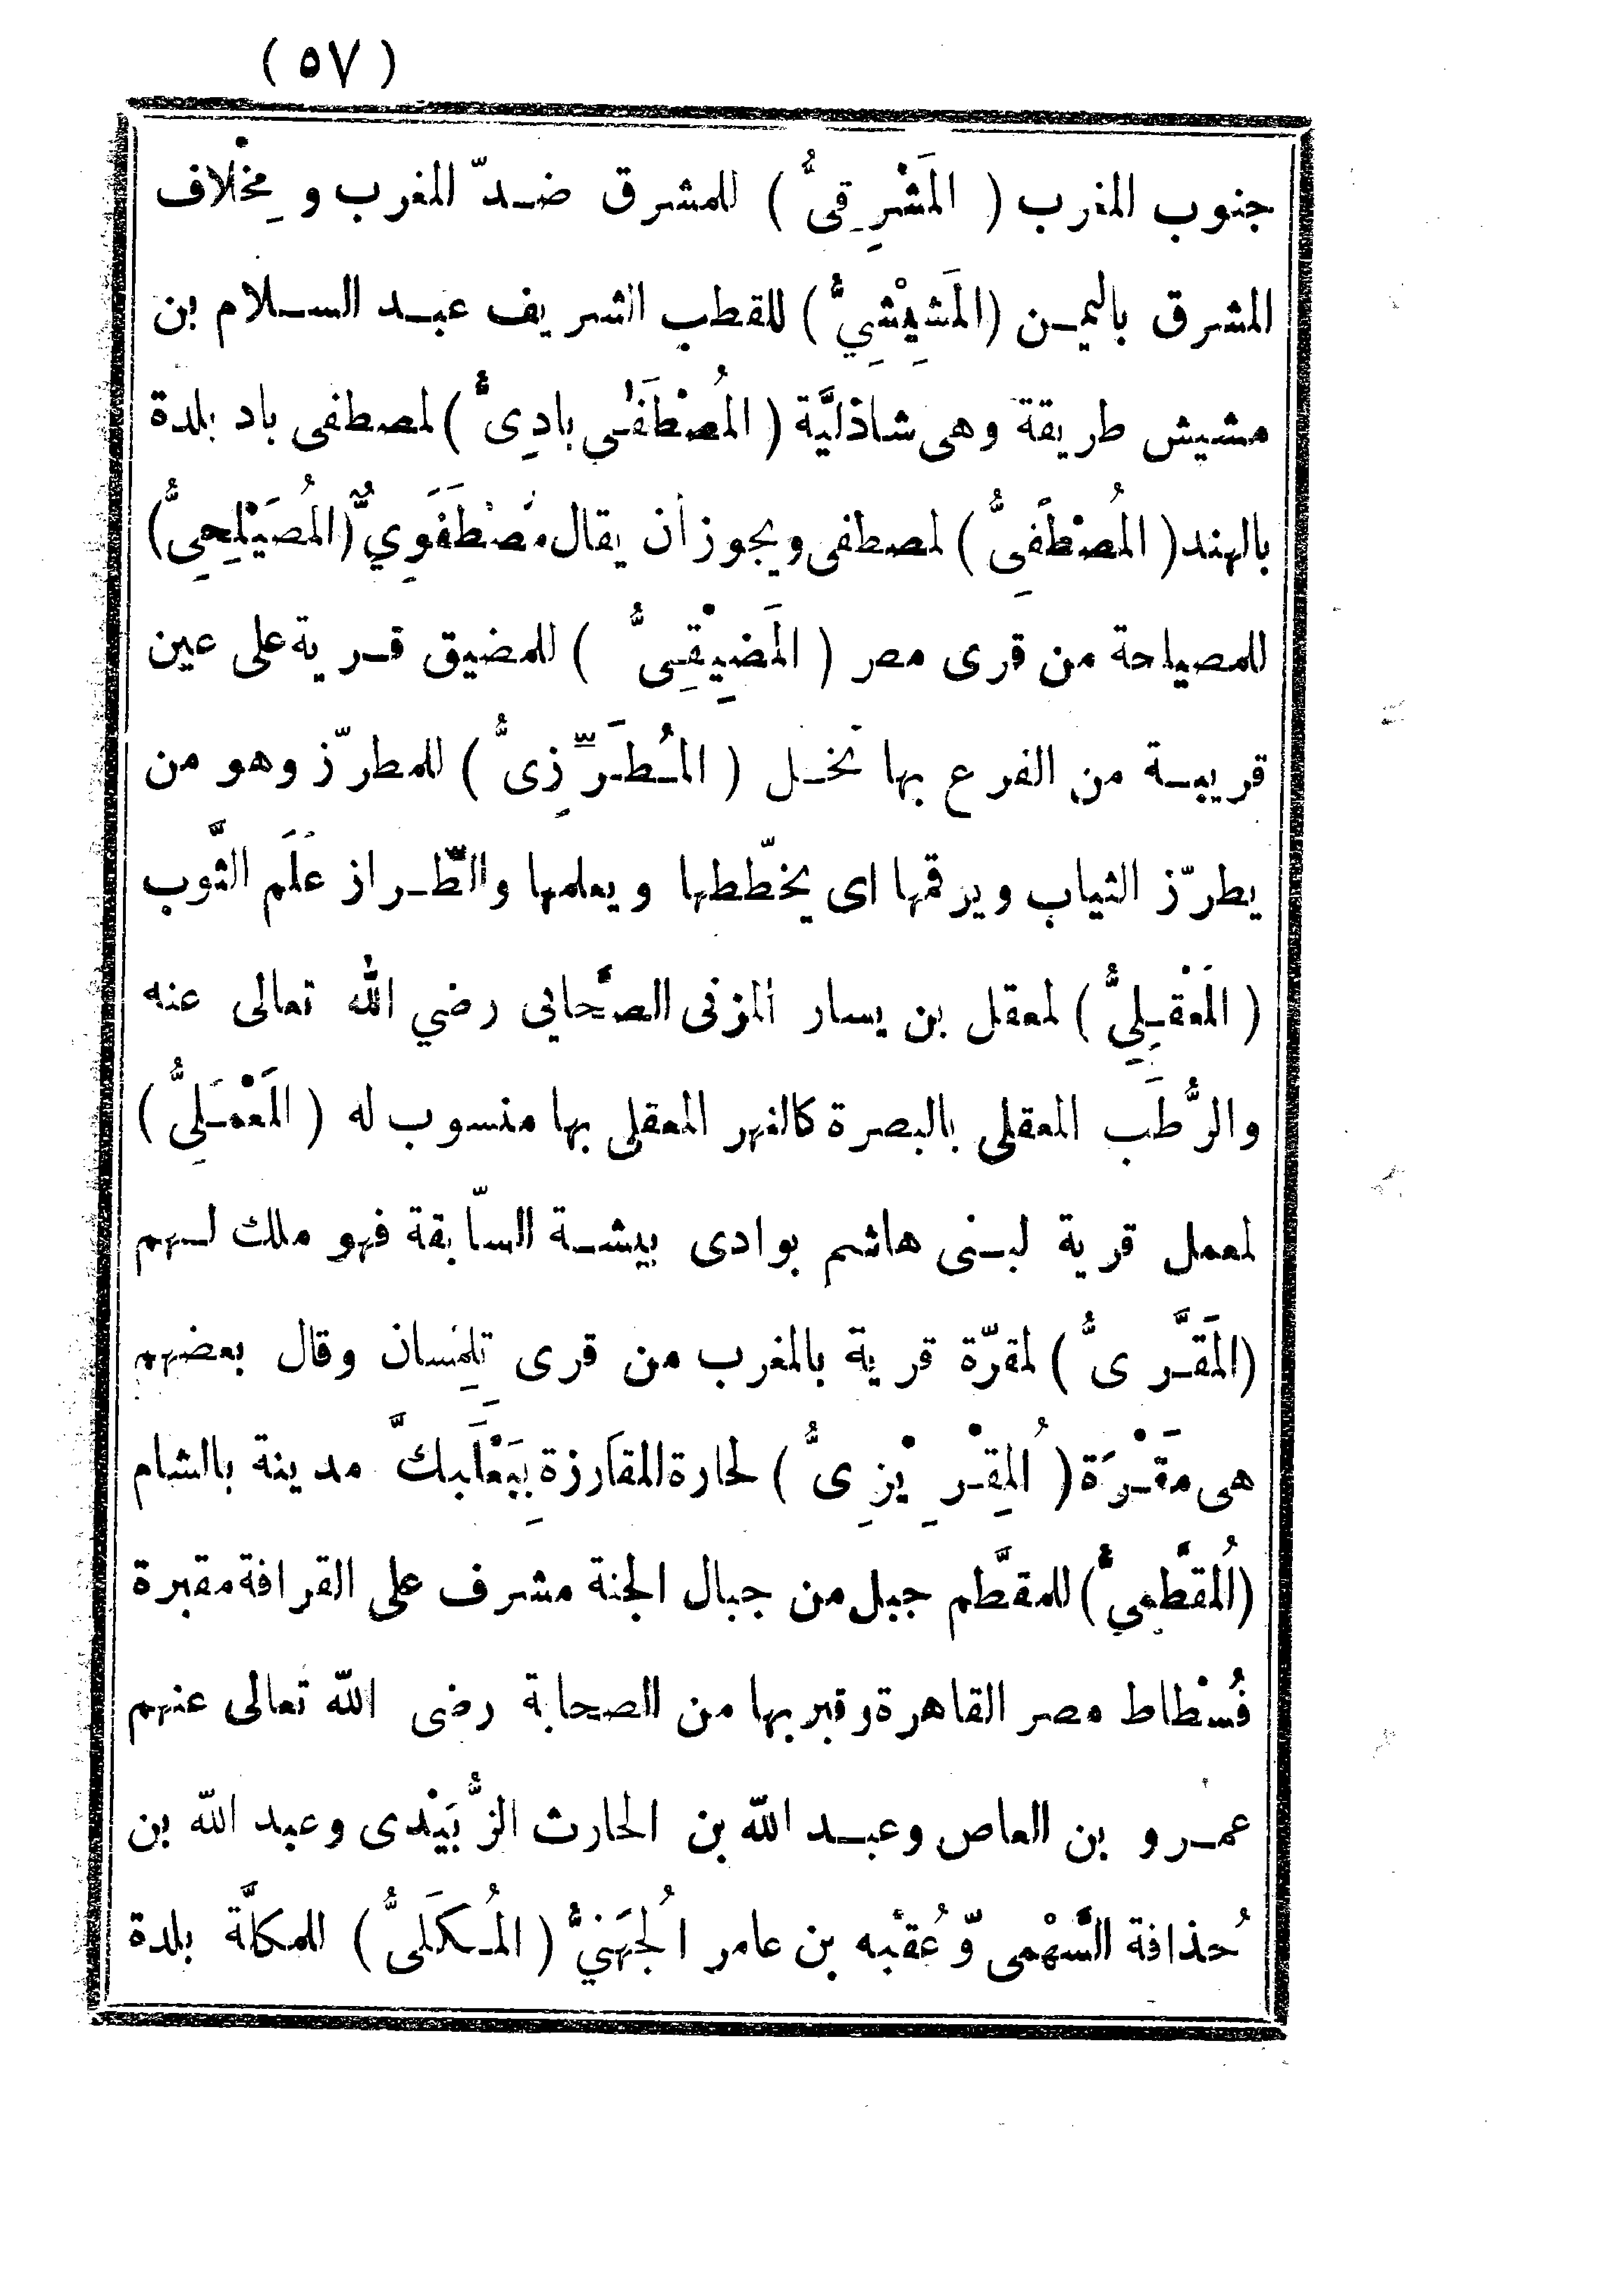 ( ٥٧ )
جنوب المغرب ( المَشْرِقىُّ ) للمشرق ضدّ المغرب و مِخْلاف
المشرق باليمن (المَشِيْشِيُّ) للقطب الشريف عبد السلام بن
مشيش طريقة وهى شاذليَّة ( المُصْطَفٰى بادِىُّ ) لمصطفى باد بلدة
بالهند ( المُصْطَفِىُّ ) لمصطفى ويجوز أن يقال مُصْطَفَوِيٌّ (المُصَيْلِحِىُّ)
للمصيلحة من قرى مصر ( المَضِيْقِىُّ ) للمضيق قرية على عين
قريبة من الفرع بها نَخل ( المُطَرِّزِىُّ ) للمطرّز وهو من
يطرّز الثياب ويرقمها اى يخطّطها ويعلمها والطّراز عَلَم الثَّوب
( المَعْقِلِيُّ ) لمعقل بن يسار المزنى الصَّحابي رضي الله تعالى عنه
والرُّطَب المعقلى بالبصرة كالنهر المعقلى بها منسوب له ( المَعْمَلِىُّ )
لمعمل قرية لبنى هاشم بوادى بيشة السّابقة فهو ملك لهم
(المَقَّرىُّ ) لمقرّة قرية بالمغرب من قرى تِلِمْسان وقال بعضهم
هى مَقْرَة ( المُِقْرِيْزِىُّ ) لحارة المقارزة بِبَعْلَبكَّ مدينة بالشام
(المُقطَّمِيُّ) للمقطَّم جبل من جبال الجنة مشرف على القرافة مقبرة
فُسْطاط مصر القاهرة وقبر بها من الصحابة رضى الله تعالى عنهم
عمرو بن العاص وعبد الله بن الحارث الزُّبَيْدى وعبد الله بن
حُذافة السَّهْمى وّعُقبه بن عامر الجُهَنيُّ ( المُكَلىُّ ) للمكلَّة بلدة